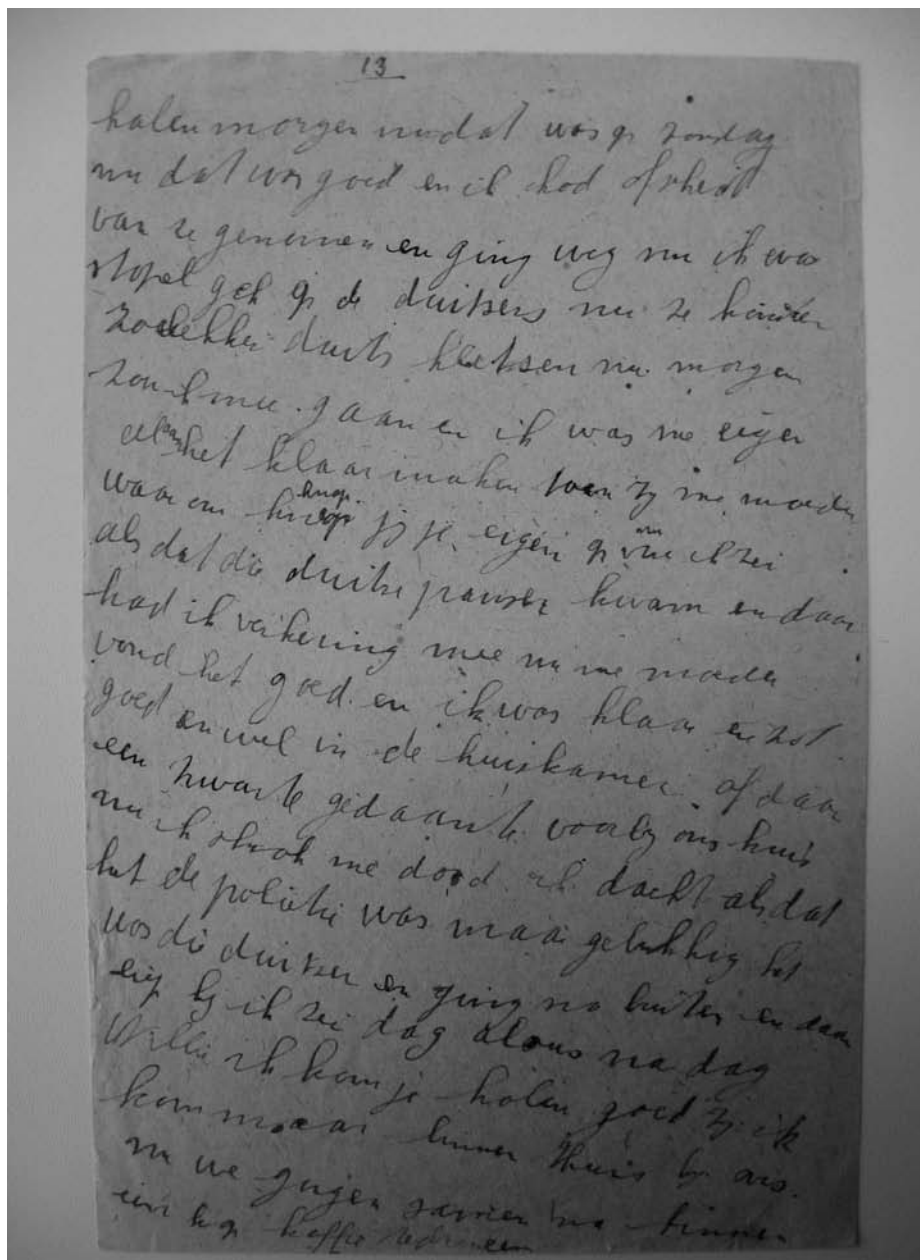 13
halen morgen nu dat was op zondag
nu dat was goed en ik had afscheid
van ze genomen en ging weg nu ik was
stapel gek op de duitsers nu ze konden
zo lekker duits kletsen nu morgen
zou ik mee gaan en ik was me eigen
aan het klaar maken toen zij me moeder
waarom knap jij je eigen op ik zei
als dat die duitse kwam en daar
had ik verkering mee nu me moeder
vond het goed en ik was klaar en zat
goed en wel in de huiskamer of daar
een zwarte gedaante voorbij ons huis
nu ik schrok me dood ik dacht als dat
het de politie was maar gelukkig het
was die duitser en ging na buiten en daar
liep hij ik zei dag alous na dag
Willie ik kom je halen goed zij ik
kom maar binnen thuis bij ons.
nu we gingen samen na binnen
een kop koffie